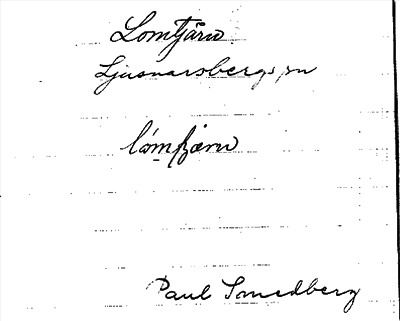 Lomtjärn
Ljusnarsbergs sn
lómtjærn
Paul Smedberg